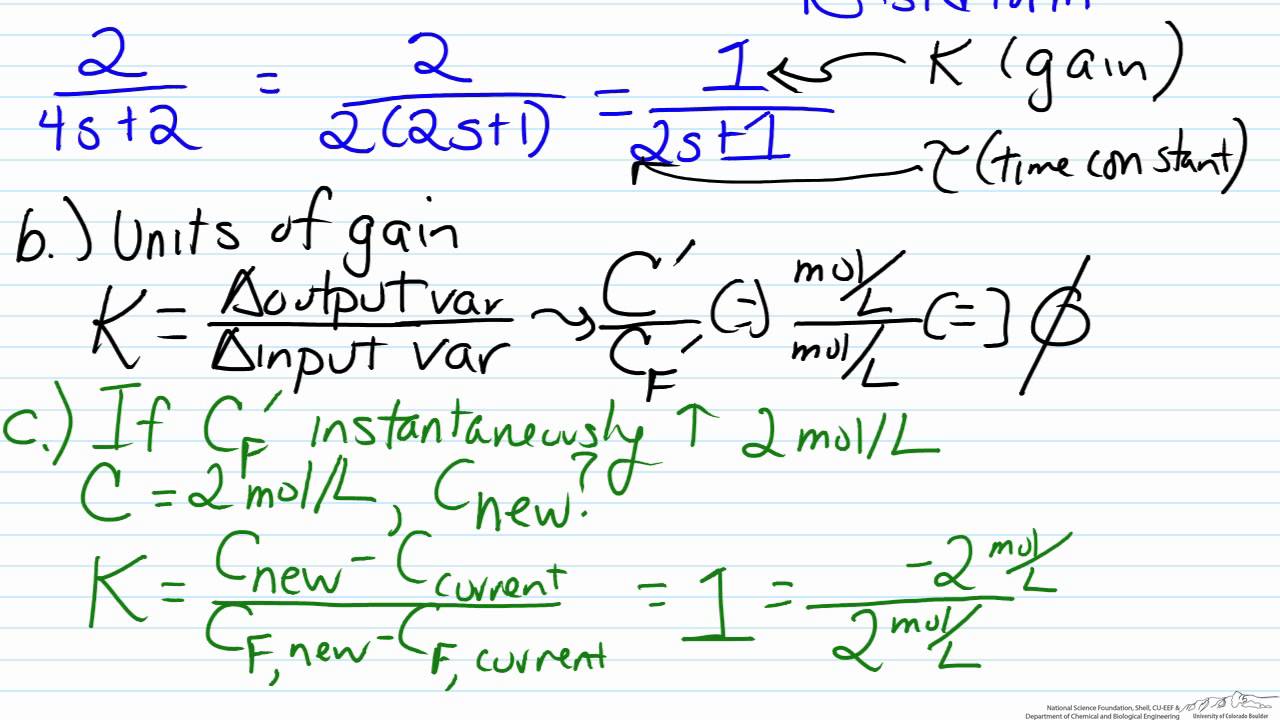 2/(4s+2) = 2/(2(2s+1)) = 1/(2s+1) K (gain)
τ (time constant)
b.) Units of gain
K = Δoutput var/Δinput var ⇝ C′/C_F′ (=) (mol/L)/(mol/L) (=] ∅
c.) If C_F′ instantaneously ↑ 2 mol/L
C = 2 mol/L, C_new?
K = (C_new - C_current)/(C_F,new - C_F,current) = 1 = (-2 mol/L)/(2 mol/L)
National Science Foundation, Shell, CU-EEF &
Department of Chemical and Biological Engineering
University of Colorado Boulder